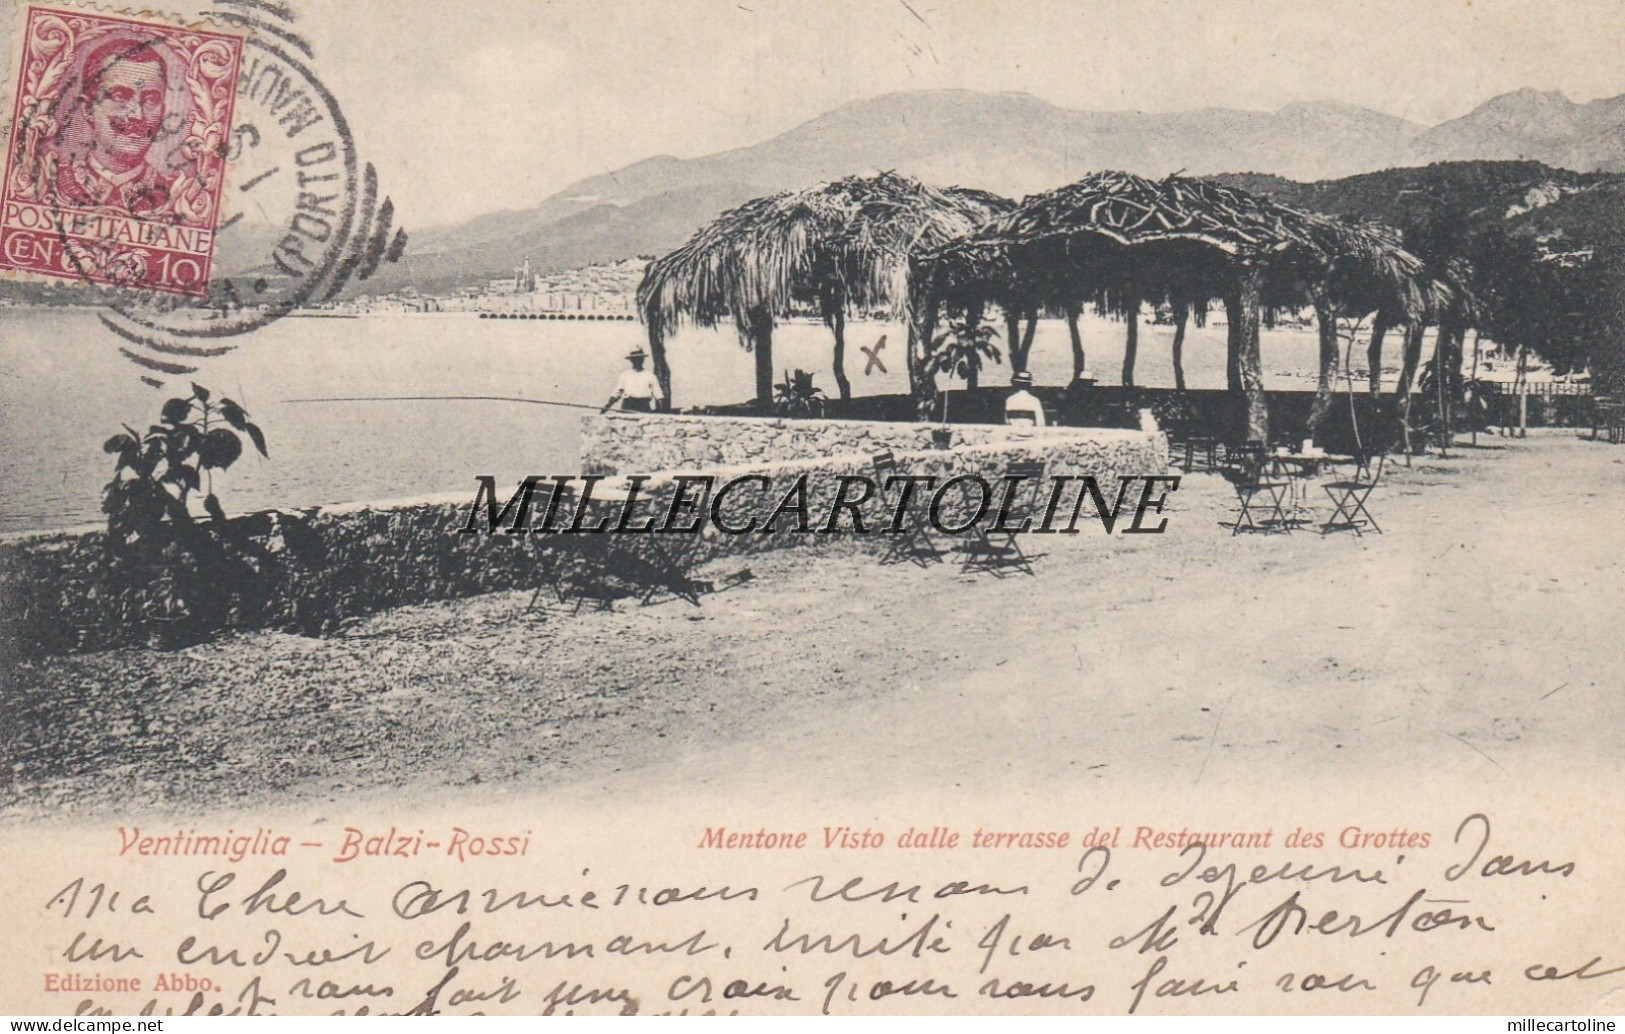 POSTE·ITALIANE
CEN 10
(PORTO MAUR
MILLECARTOLINE
Ventimiglia – Balzi-Rossi
Mentone Visto dalle terrasse del Restaurant des Grottes
Ma Chere Armié nous venons de dejeuné dans
un endroit charmant, invité par
Edizione Abbo.
fait une croix pour vous faire voir que cet
millecartoline